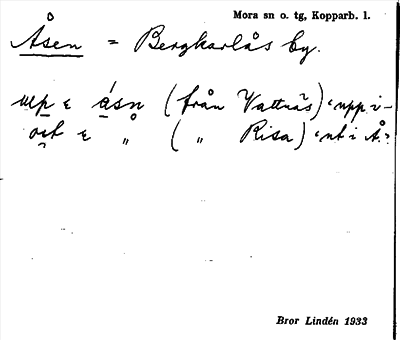 Mora sn o. tg, Kopparb. l.
Åsen = Bergkarlås by.
up ɛ åsn (från Vattnäs) "upp i-
ɛ " ( " Risa) "ut i Å."
Bror Lindén 1933